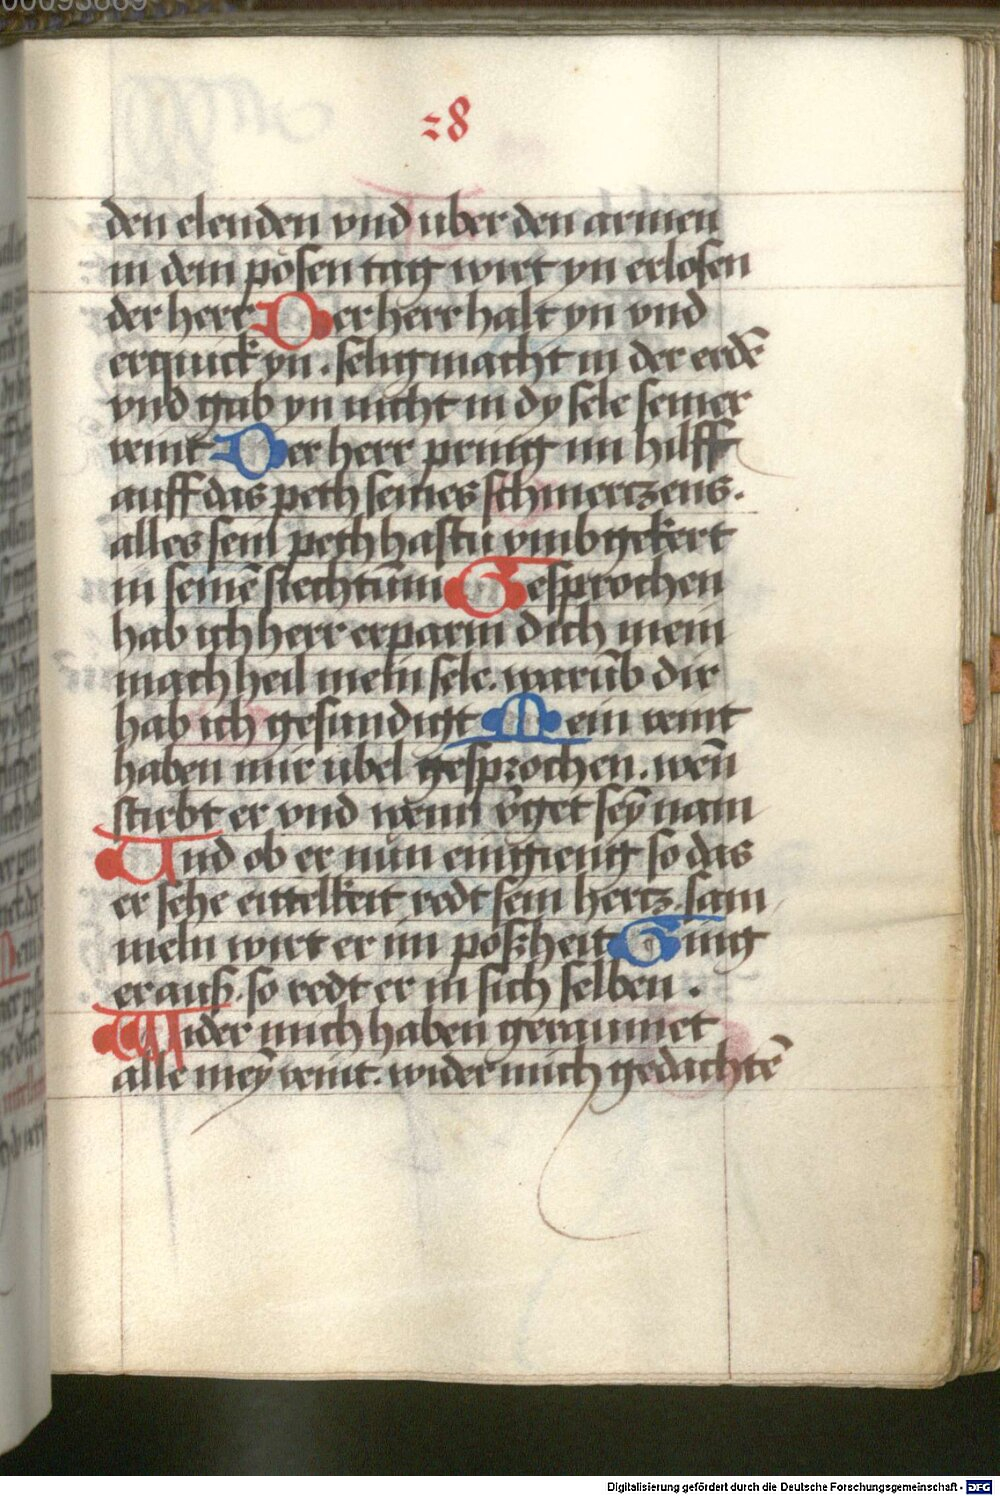 28
den elenden vnd uber den armen
in dem pösen tag wirt yn erlosen
der herr Der herr halt yn vnd
erquick yn. selig macht in der erdē
vnd gab yn nicht in dy sele seiner
veint Der herr pring im hilff
auff das peth seines schmerczens.
alles sein peth hastu vmbgekert
in seinē siechtūm Gesprochen
hab ich herr erparm dich mein
mach heil mein sele. warūb dir
hab ich gesundigt Mein veint
haben mir ubel gesprochen. wen̄
stirbt er vnd wenn v̄get seȳ nam
Und ob er nun eingieng so das
er sehe eittelkeit redt sein hertz. sam
meln wirt er im poßheit Ging
er auß. so redt er in sich selben.
Wider mich haben geraumet
alle meȳ veint. wider mich gedachtē
Digitalisierung gefördert durch die Deutsche Forschungsgemeinschaft - DFG